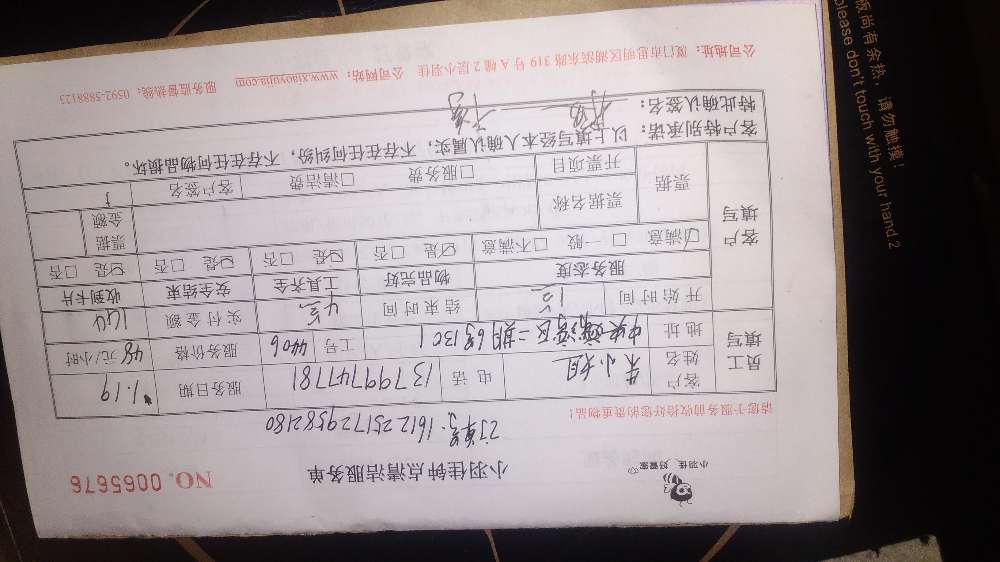 小羽佳 好管家
小羽佳钟点清洁服务单
NO. 0065676
订单号:1612251729582180
请您于服务前收拾好您的贵重物品!
员工填写
客户姓名 朱小姐 电话 13799747781 服务日期 1.19
地址 中央海湾区二期6号1301 工号 4406 服务价格 48元/小时
客户填写
开始时间 结束时间 实付金额 144
服务态度 物品完好 工具齐全 安全结束 收到卡片
☑满意 □一般 □不满意 ☑是 □否 ☑是 □否 ☑是 □否 ☑是 □否
票据 票据名称 票据金额
开票项目 □服务费 □清洁费 客户签名
客户特别承诺: 以上填写经本人确认属实,不存在任何纠纷,不存在任何物品损坏。
特此确认签名:
公司地址:厦门市思明区湖滨东路319号A幢2层小羽佳 公司网站:www.xiaoyujia.com 服务监督热线:0592-5888123
版尚有余热,请勿触摸!
please don't touch with your hand 2